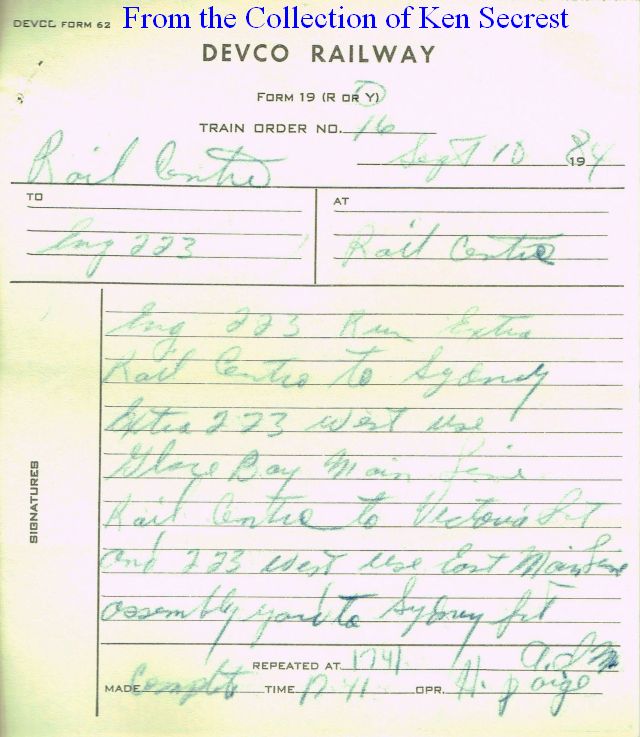 From the Collection of Ken Secrest
DEVCO FORM 62
DEVCO RAILWAY
FORM 19 (R OR Y)
TRAIN ORDER NO. 16
Rail Centre Sept 10 1984
TO
AT
Eng 223
Rail Centre
Eng 223 Run Extra
Rail Centre to Sydney
Extra 223 west use
Glace Bay Main Line
Rail Centre to Victoria Jct
and 223 west use East Main Line
assembly yard to Sydney Jct
SIGNATURES
REPEATED AT 1741
MADE Complete TIME 17 41 OPR. H. Paige